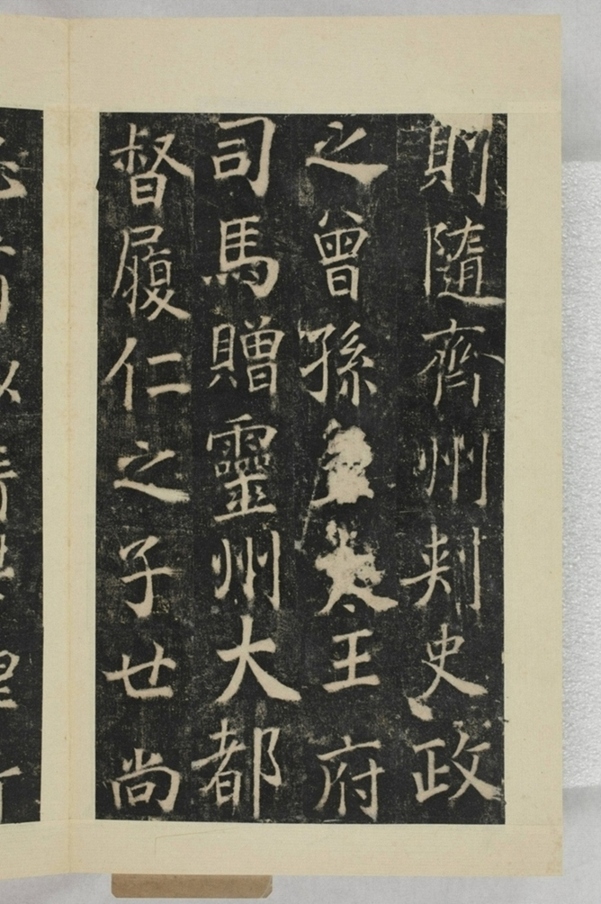 則隨齊州刾史政
之曾孫王府
司馬贈靈州大都
督履仁之子廿尚